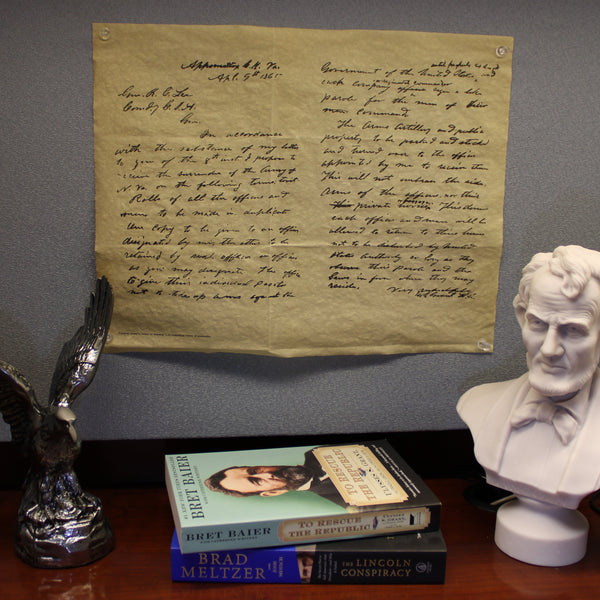 Appomattox C. H. Va.
Apl. 9th 1865
Gen. R. E. Lee
Comdg C. S. A.
Gen.
In accordance
with the substance of my letter
to you of the 8th inst. I propose to
receive the surrender of the Army of
N. Va. on the following terms, towit
Rolls of all the officers and
men to be made in duplicate
One copy to be given to an officer
designated by me, the other to be
retained by such officer or officers
as you may designate. The officers
to give their individual paroles
not to take up arms against the
until properly
Government of the United States, and
each company or regimental commander sign a like
parole for the men of their
command
The Arms, Artillery and public
property to be parked and stacked
and turned over to the officer
appointed by me to receive them
This will not embrace the side
Arms of the officers nor their
private horses This done
each officer and man will be
allowed to return to their homes
not to be disturbed by United
States Authority so long as they
observe their parole and the
laws in force where they may
reside.
Very respectfully
BRET BAIER
TO RESCUE
THE REPUBLIC
BRET BAIER
TO RESCUE
THE REPUBLIC
BRAD
MELTZER
AND
JOSH
MENSCH
THE LINCOLN
CONSPIRACY